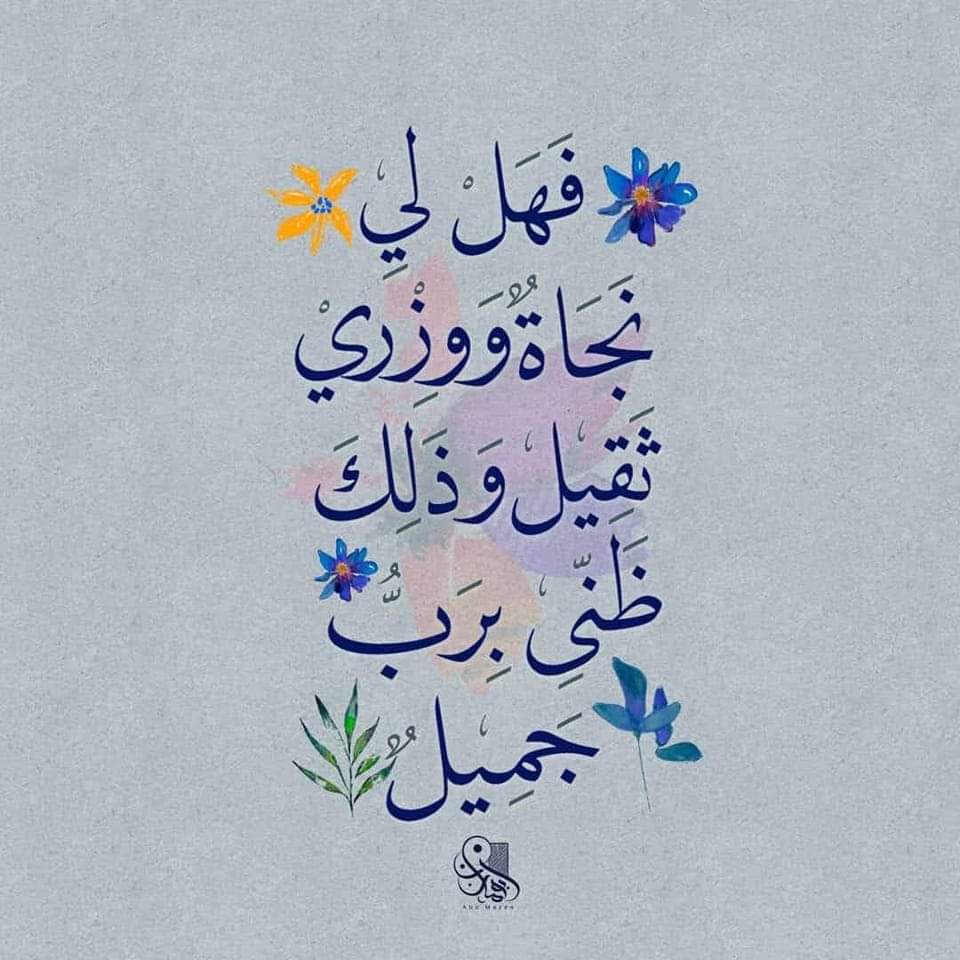 فَهَلْ لِي
نَجَاةٌ وَوِزْرِيْ
ثَقِيل وَذَلِكَ
ظَنّيِ بِرَبُّ
جَمِيلٌ
Abu Mazen